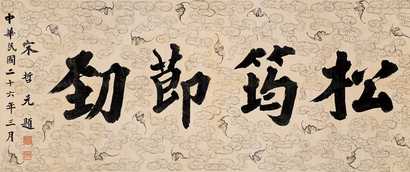 松筠節勁
宋哲元題
中華民國二十六年三月